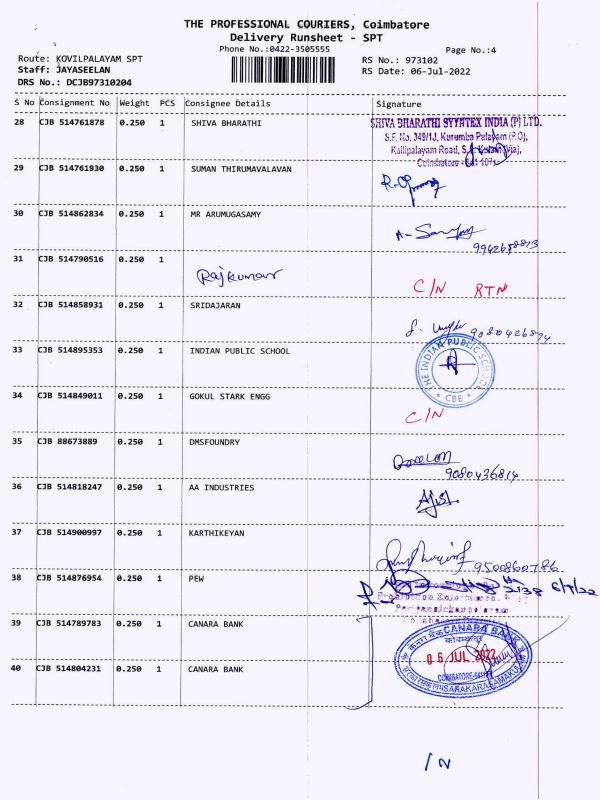 THE PROFESSIONAL COURIERS, Coimbatore
Delivery Runsheet - SPT
Phone No.:0422-3505555
Page No.:4
Route: KOVILPALAYAM SPT
RS No.: 973102
Staff: JAYASEELAN
RS Date: 06-Jul-2022
DRS No.: DCJB97310204
S No Consignment No Weight PCS Consignee Details Signature
28 CJB 514761878 0.250 1 SHIVA BHARATHI
SHIVA BHARATHI SYNTEX INDIA (P) LTD.
S.F. No. 349/1J, Kurumba Palayam (P.O),
Kalipalayam Road, S.S. Kulam (Via),
Coimbatore - 641 107.
29 CJB 514761930 0.250 1 SUMAN THIRUMAVALAVAN
30 CJB 514862834 0.250 1 MR ARUMUGASAMY
31 CJB 514790516 0.250 1
Rajkumar
C/N RTN
32 CJB 514858931 0.250 1 SRIDAJARAN
9080426874
33 CJB 514895353 0.250 1 INDIAN PUBLIC SCHOOL
THE INDIAN PUBLIC SCHOOL
* CBE *
34 CJB 514849011 0.250 1 GOKUL STARK ENGG
C/N
35 CJB 88673889 0.250 1 DMSFOUNDRY
9080436814
36 CJB 514818247 0.250 1 AA INDUSTRIES
37 CJB 514900997 0.250 1 KARTHIKEYAN
9500860786
38 CJB 514876954 0.250 1 PEW
6/7/22
39 CJB 514789783 0.250 1 CANARA BANK
CANARA BANK
06 JUL 2022
COIMBATORE
40 CJB 514804231 0.250 1 CANARA BANK
/ N